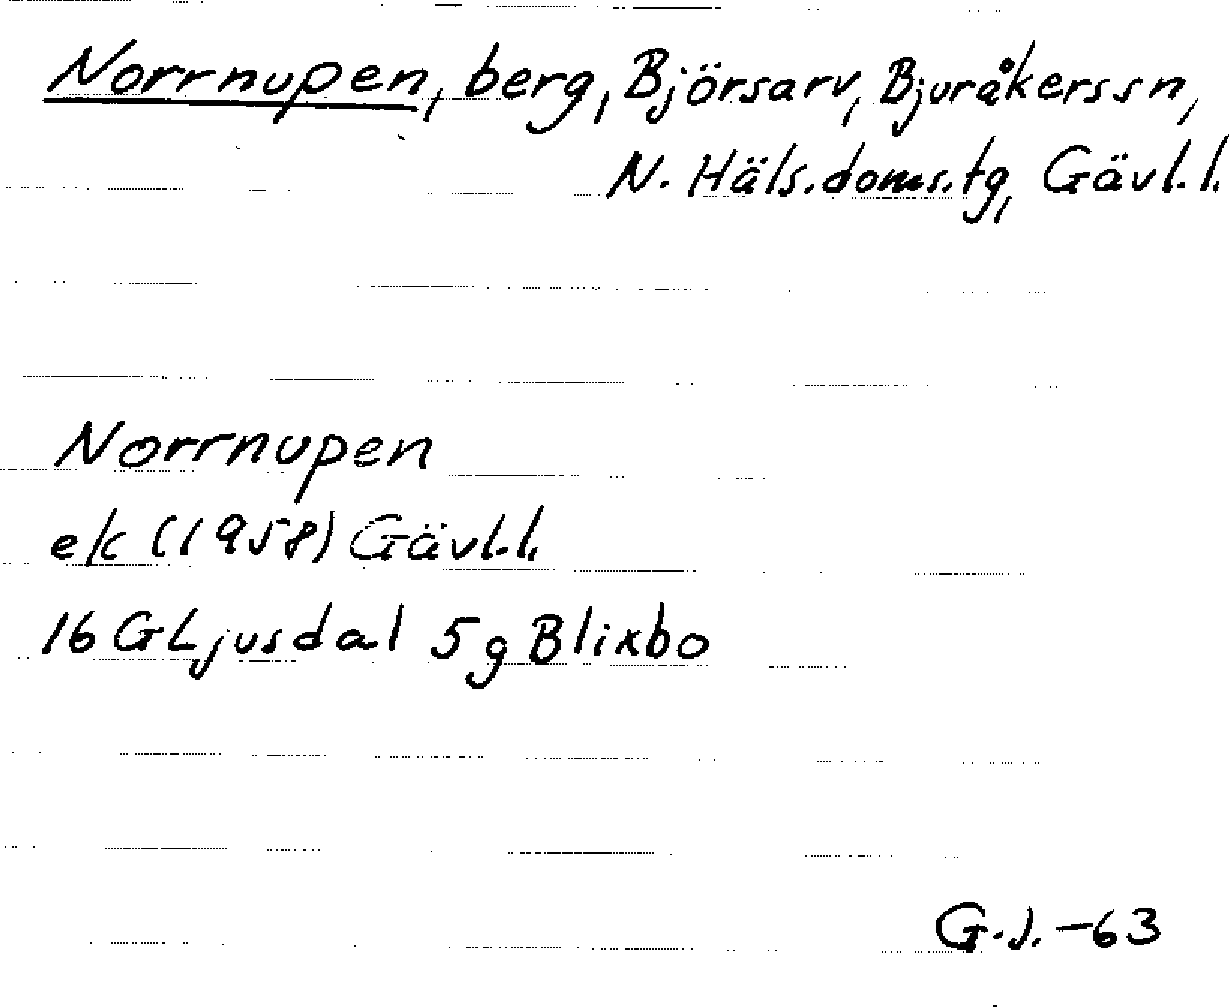 Norrnupen, berg, Björsarv, Bjuråkerssn,
N. Häls.doms.tg, Gävl.l.
Norrnupen
ek (1958) Gävl.l.
16 G Ljusdal 5g Blixbo
G.J. -63